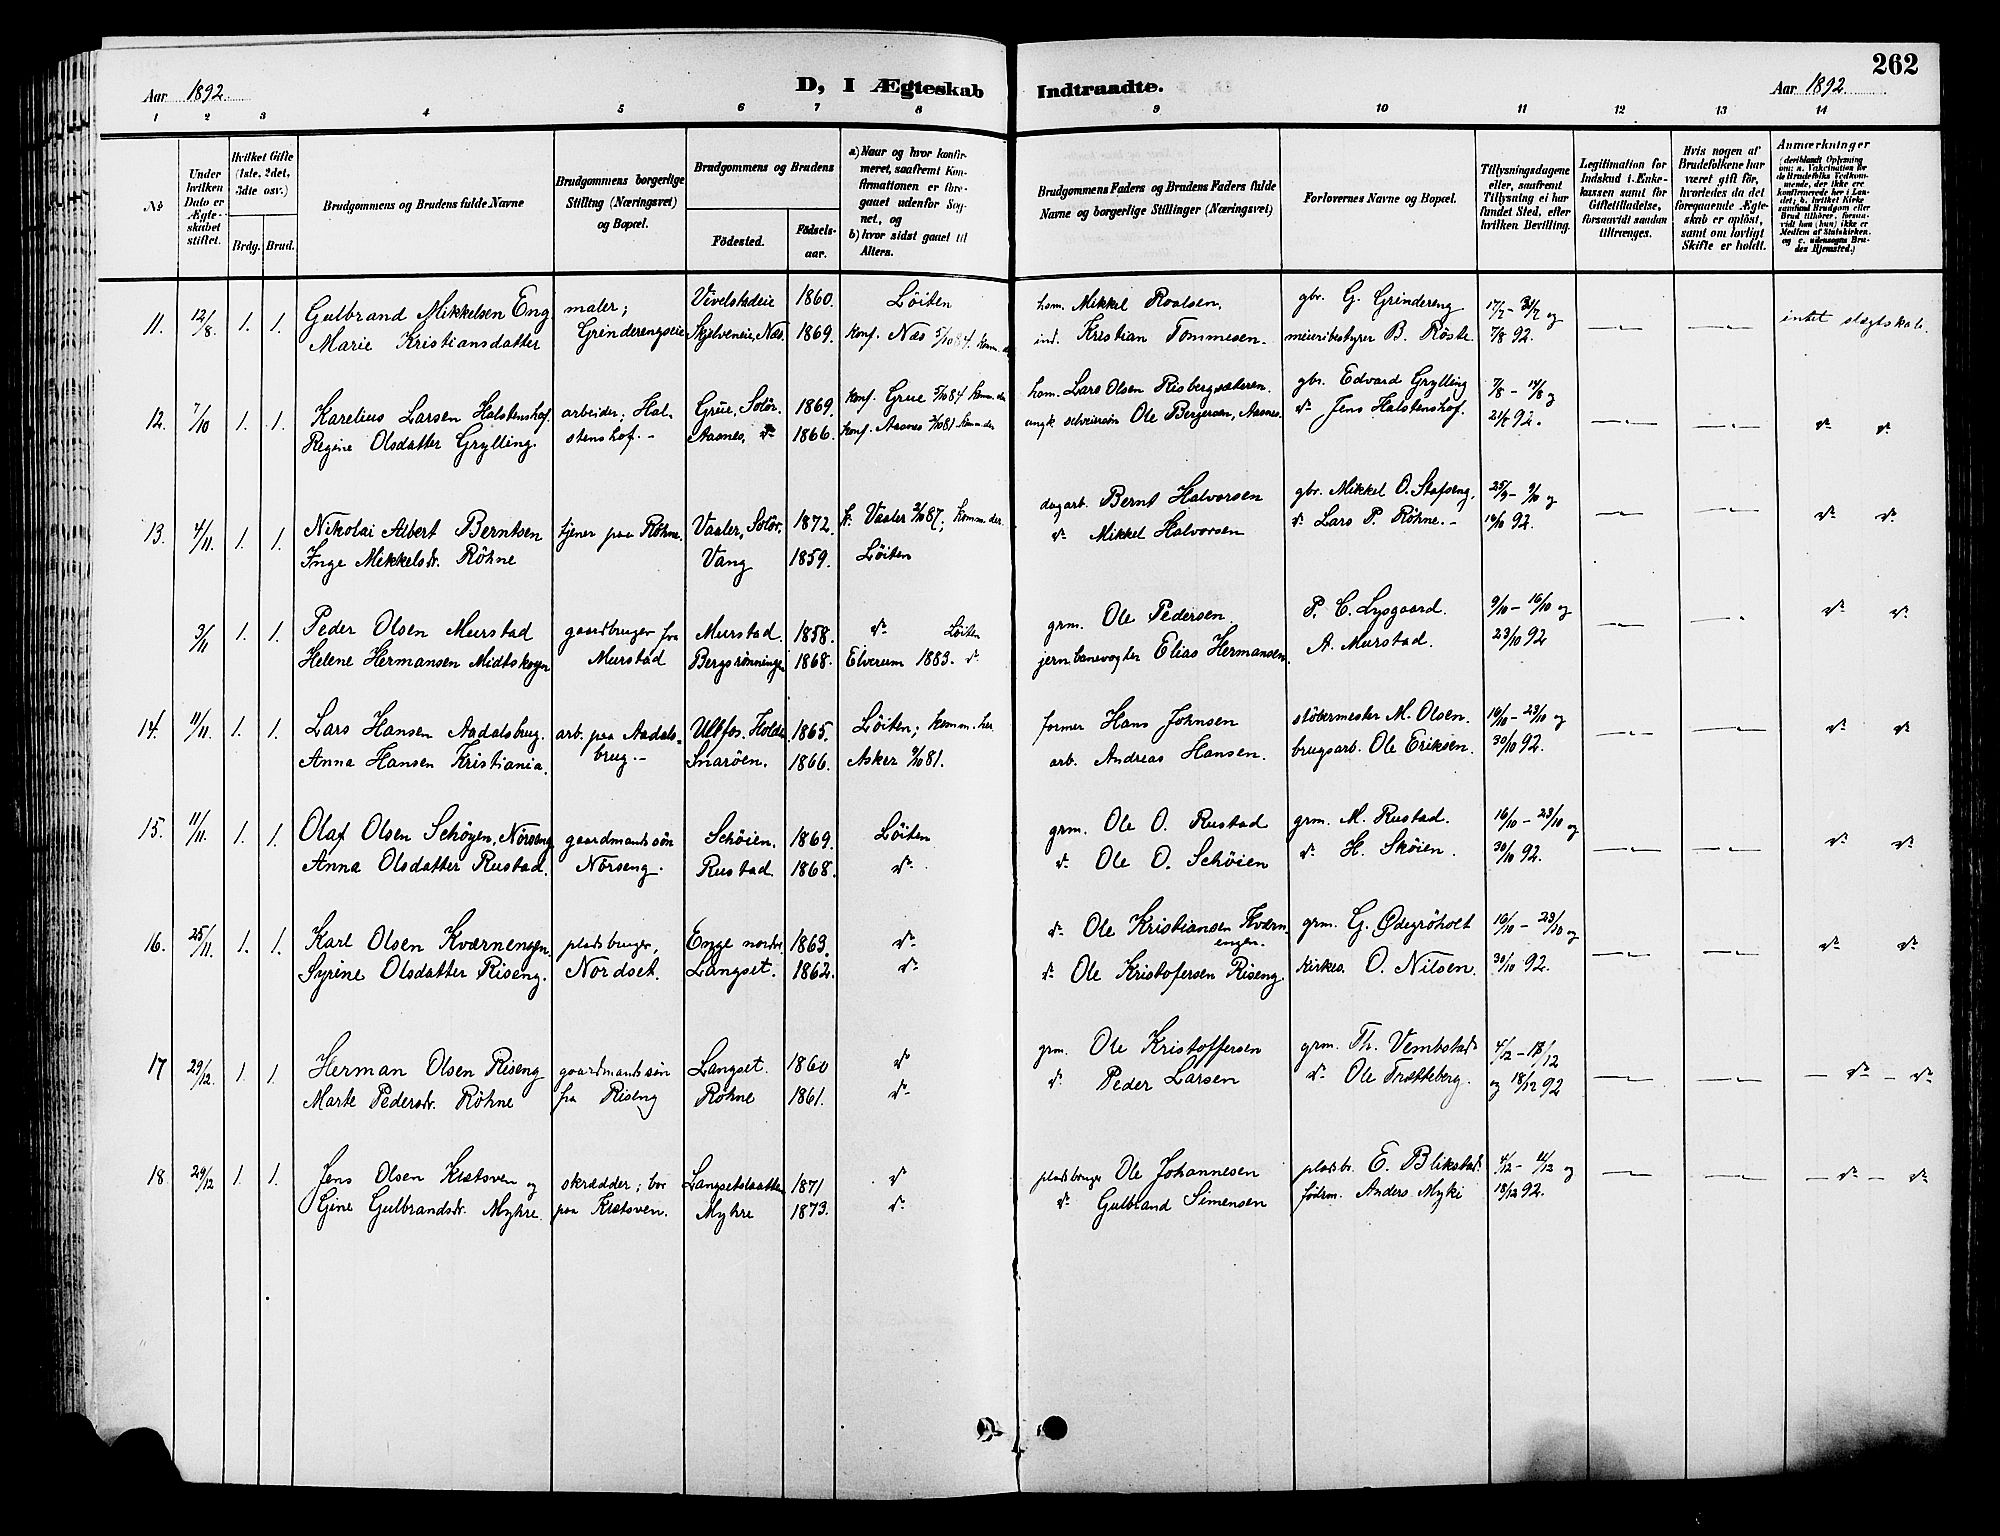 262
Aar 1892.
D, I Ægteskab Indtraadte.
Aar 1892.
1 2 3 4 5 6 7 8 9 10 11 12 13 14
No
Under hvilken Dato er Ægteskabet stiftet.
Hvilket Gifte (1ste, 2det, 3die osv.)
Brdg. Brud.
Brudgommens og Brudens fulde Navne
Brudgommens borgerlige Stilling (Næringsvei) og Bopæl.
Brudgommens og Brudens
Födested.
Födselsaar.
a) Naar og hvor konfirmeret, saafremt Konfirmationen er foregaaet udenfor Sognet, og
b) hvor sidst gaaet til Alters.
Brudgommens Faders og Brudens Faders fulde Navne og borgerlige Stillinger (Næringsvei)
Forlovernes Navne og Bopæl.
Tillysningsdagene eller, saafremt Tillysning ei har fundet Sted, efter hvilken Bevilling.
Legitimation for Indskud i Enkekassen samt for Giftetilladelse, forsaavidt saadan tiltrænges.
Hvis nogen af Brudefolkene har været gift før, hvorledes da det foregaaende Ægteskab er opløst, samt om lovligt Skifte er holdt.
Anmærkninger
11. 12/8. 1. 1. Gulbrand Mikkelsen Eng maler; Vivelstadeie 1860. Löiten hom. Mikkel Roalsen. gbr. G. Grindereng 17/7 - 31/7 og intet slægtskab.
Marie Kristiansdatter Grinderengseie Skjelveneie, Næs. 1869. konf. Næs 5/10 84. ind. Kristian Tommesen. meieribestyrer B. Röste. 7/8 92.
12. 7/10 1. 1. Karelius Larsen Halstenshof. arbeider; Hal- Grue, Solör. 1869. konf. Grue 5/10 84 hom. Lars Olsen Risbergsæteren. gbr. Edvard Grylling 7/8 - 14/8 og
Regine Olsdatter Grylling. stenshof. - Aasnes, do 1866. konf. Aasnes Ole Bergersen, Aasnes. do Jens Halstenshof. 21/8 92. do do
13. 4/11. 1. 1. Nikolai Albert Berntsen tjener paa Röhne. Vaaler, Solör. 1872. k. Vaaler 2/10 87; dagarb. Bernt Halvorsen gbr. Mikkel O. Stafseng. 25/9 - 9/10 og
Inge Mikkelsdr. Röhne Vang 1859. Löiten do Mikkel Halvorsen do Lars P. Röhne. - 16/10 92. do do
3/11 1. 1. Peder Olsen Murstad gaardbruger fra Murstad. 1858. do Löiten grm. Ole Pedersen P. C. Lysgaard. 9/10 - 16/10 og do do
Helene Hermansen Midtskogen Murstad Bergsrønningen 1868. Elverum 1883. do jernbanevogter Elias Hermansen. A. Murstad. 23/10 92
14. 11/11. 1. 1. Lars Hansen Aadalsbrug. arb. paa Aadals- Ulefos. Holden 1865. Löiten; komm. her former Hans Johnsen stöbermester M. Olsen. 16/10 - 23/10 og do do
Anna Hansen Kristiania. brug. - Snaröen. 1866. Asker 2/10 81. arb. Andreas Hansen. brugsarb. Ole Eriksen. 30/10 92.
15. 11/11. 1. 1. Olaf Olsen Schöyen, Nörseng gaardmandssön Schöien. 1869. Löiten grm. Ole O. Rustad grm. M. Rustad. 16/10 - 23/10 og do do
Anna Olsdatter Rustad. Nörseng. Rustad 1868. do do Ole O. Schöien do H. Sköien. 30/10 92.
16. 25/11. 1. 1. Karl Olsen Kværnengen. pladsbruger, Enge nordre 1863. do do Ole Kristiansen Kværnengen. grm. G. Ødegröholt 16/10 - 23/10 og do do
Syrine Olsdatter Riseng. Nordset. Langset. 1862. do do Ole Kristofersen Riseng. Kirkes. O. Nilsen. 30/10 92.
17 29/12. 1. 1. Herman Olsen Riseng gaardmandssön Langset. 1860 do grm. Ole Kristoffersen grm. Th. Vembstad 4/12 - 11/12 do do
Marte Pedersdr. Röhne fra Riseng Röhne 1861. do do Peder Larsen do Ole Trætteberg. og 18/12 92
18 29/12 1. 1. Jens Olsen Kistsven og skrædder; bor Langsetslaatten 1871 do pladsbruger Ole Johannesen pladsbr. E. Blikstad. 4/12 - 11/12 og do do
Gine Gulbrandsdr. Myhre. paa Kistsven. Myhre 1873. do do Gulbrand Simensen Anders Myki 18/12 92.